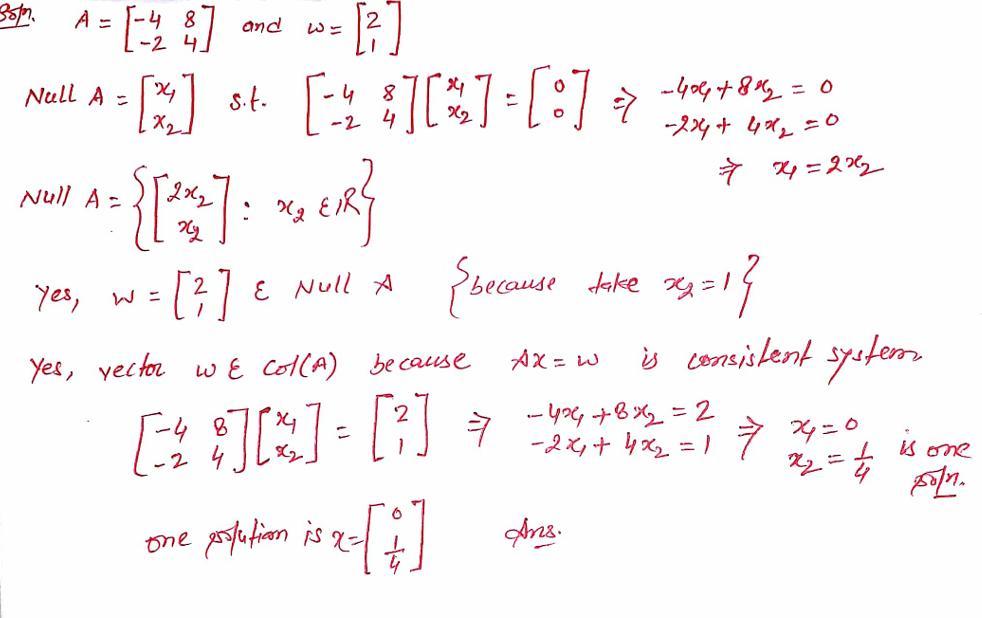 Soln. A = [-4 8; -2 4] and w = [2; 1]
Null A = [x1; x2] s.t. [-4 8; -2 4] [x1; x2] = [0; 0] ⇒ -4x1 + 8x2 = 0
-2x1 + 4x2 = 0
⇒ x1 = 2x2
Null A = { [2x2; x2] : x2 ∈ IR }
Yes, w = [2; 1] ∈ Null A { because take x2 = 1 }
Yes, vector w ∈ Col(A) because AX = w is consistent system
[-4 8; -2 4] [x1; x2] = [2; 1] ⇒ -4x1 + 8x2 = 2 ⇒ x1 = 0
-2x1 + 4x2 = 1 x2 = 1/4 is one soln.
one solution is x = [0; 1/4] Ans.